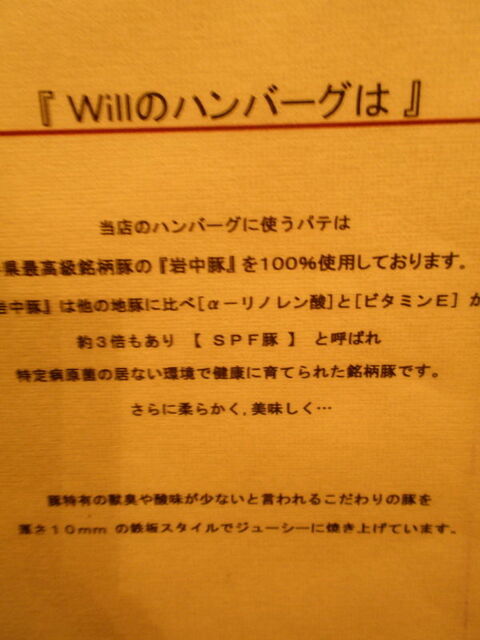 『 Willのハンバーグは 』
当店のハンバーグに使うパテは
県最高級銘柄豚の『岩中豚』を100%使用しております。
岩中豚』は他の地豚に比べ[α－リノレン酸]と[ビタミンE] が
約3倍もあり 【 SPF豚 】 と呼ばれ
特定病原菌の居ない環境で健康に育てられた銘柄豚です。
さらに柔らかく,美味しく…
豚特有の獣臭や酸味が少ないと言われるこだわりの豚を
厚さ10mm の鉄板スタイルでジューシーに焼き上げています。